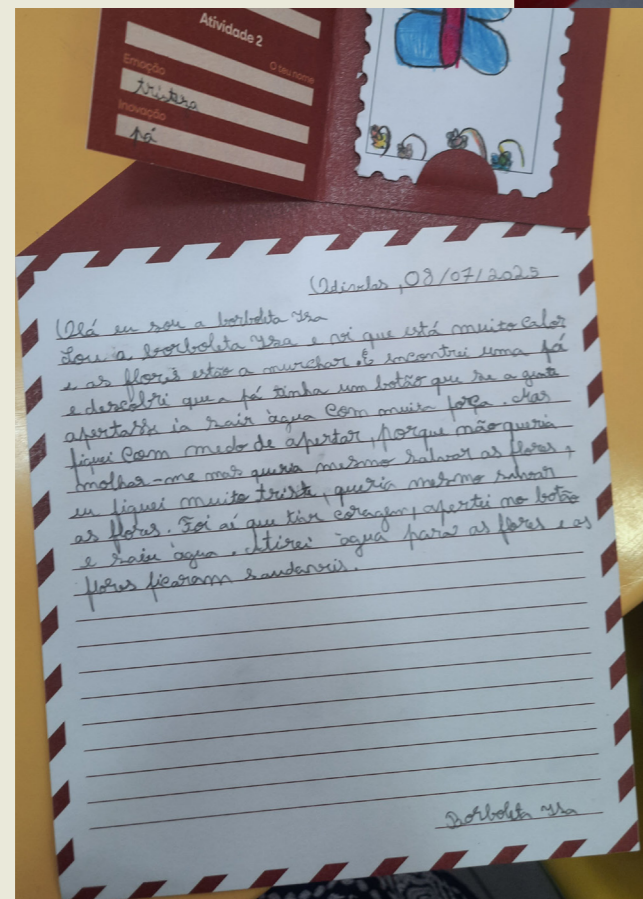 Atividade 2
O teu nome
Emoção
tristeza
Inovação
pá
Odivelas, 08/07/2025
Olá eu sou a borboleta Isa
Sou a borboleta Isa e vi que está muito calor
e as flores estão a murchar. E incontrei uma pá
e descobri que a pá tinha um botão que se a gente
apertasse ia sair água com muita força. Mas
fiquei com medo de apertar, porque não queria
molhar-me mas queria mesmo salvar as flores,
eu fiquei muito triste, queria mesmo salvar
as flores. Foi aí que tive coragem, apertei no botão
e saiu água. Atirei água para as flores e as
flores ficaram saudáveis.
Borboleta Isa